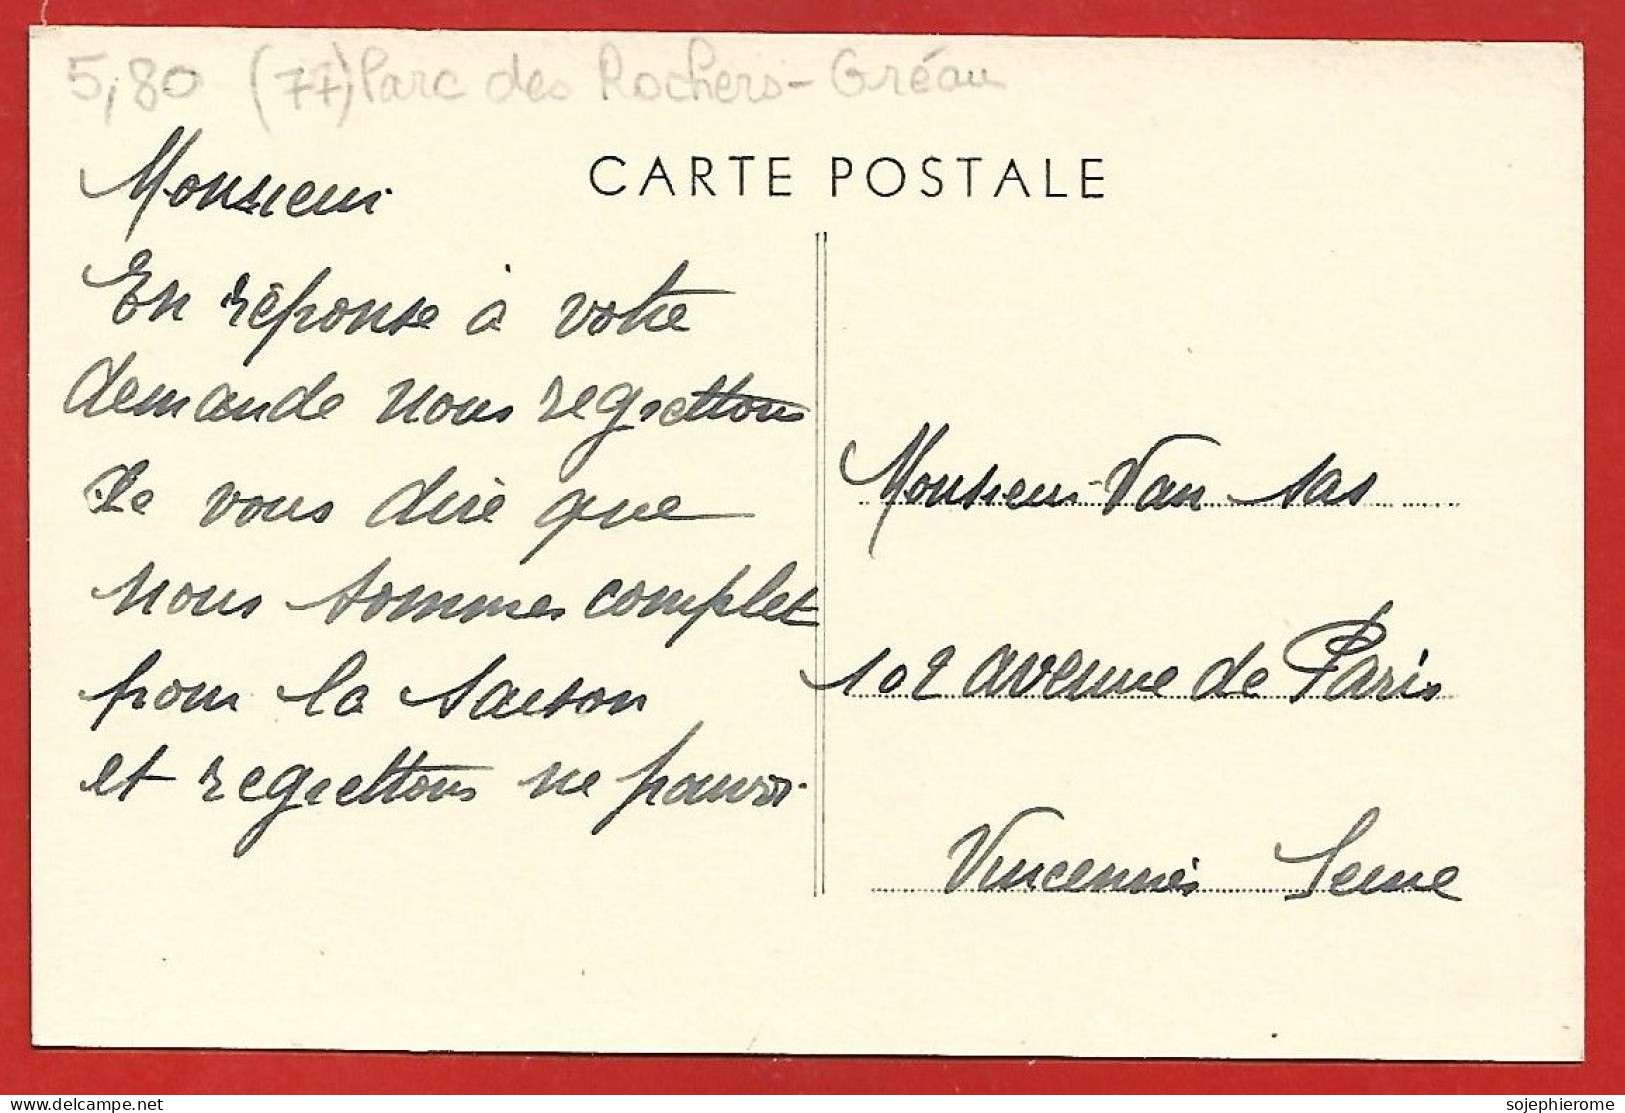 5,80 (77) Parc des Rochers - Gréau
CARTE POSTALE
Monsieur
En réponse à votre
demande nous regrettons
de vous dire que
nous sommes complet
pour la saison
et regrettons ne pouvoir
Monsieur Van Sas
102 avenue de Paris
Vincennes Seine
www.delcampe.net
sojephierome